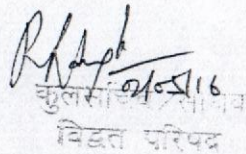 02/05/16
कुलसचिव / सचिव
विद्वत परिषद